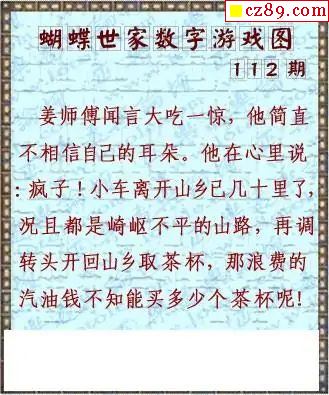 cz89.com
蝴蝶世家数字游戏图
112期
姜师傅闻言大吃一惊，他简直
不相信自己的耳朵。他在心里说
：疯子！小车离开山乡已几十里了，
况且都是崎岖不平的山路，再调
转头开回山乡取茶杯，那浪费的
汽油钱不知能买多少个茶杯呢！